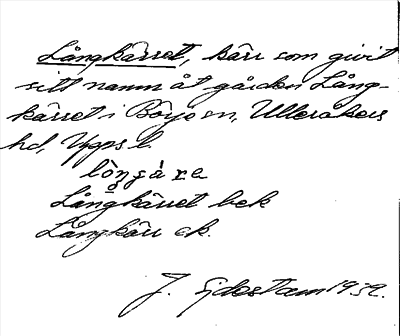 Långkärret, kärr som givit
sitt namn åt gården Lång-
kärret i Börje sn, Ulleråkers
hd, Upps. l.
Långkärret bek
Långkärr ek.
J. Sjöstam 1932.